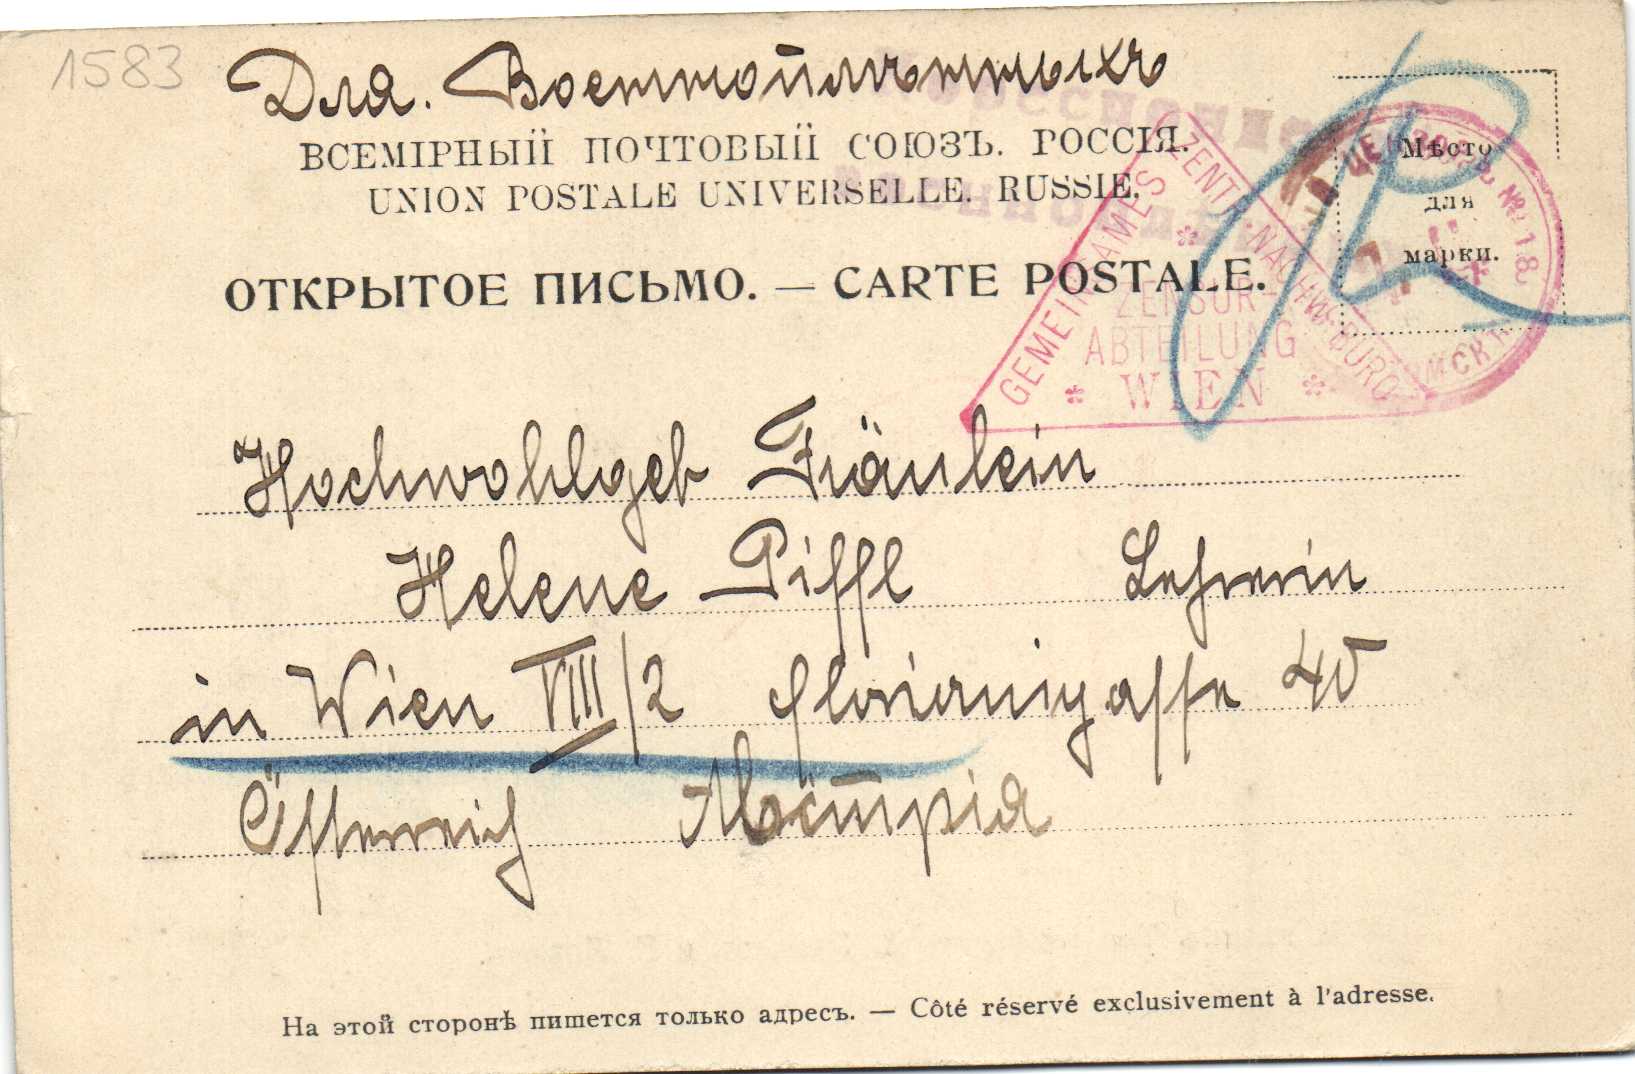 1583
Для. Военноплѣнныхъ
ВСЕМІРНЫЙ ПОЧТОВЫЙ СОЮЗЪ. РОССІЯ.
UNION POSTALE UNIVERSELLE. RUSSIE.
ОТКРЫТОЕ ПИСЬМО. — CARTE POSTALE.
Мѣсто
для
марки.
№ 18.
GEMEINSAMES ZENTR. NACHW. BURO
ZENSUR-
ABTEILUNG
WIEN
Hochwohlgeb Fräulein
Helene Piffl Lehrerin
in Wien VIII/2 Florianigasse 40
Österreich Австрія
На этой сторонѣ пишется только адресъ. — Côté réservé exclusivement à l'adresse.